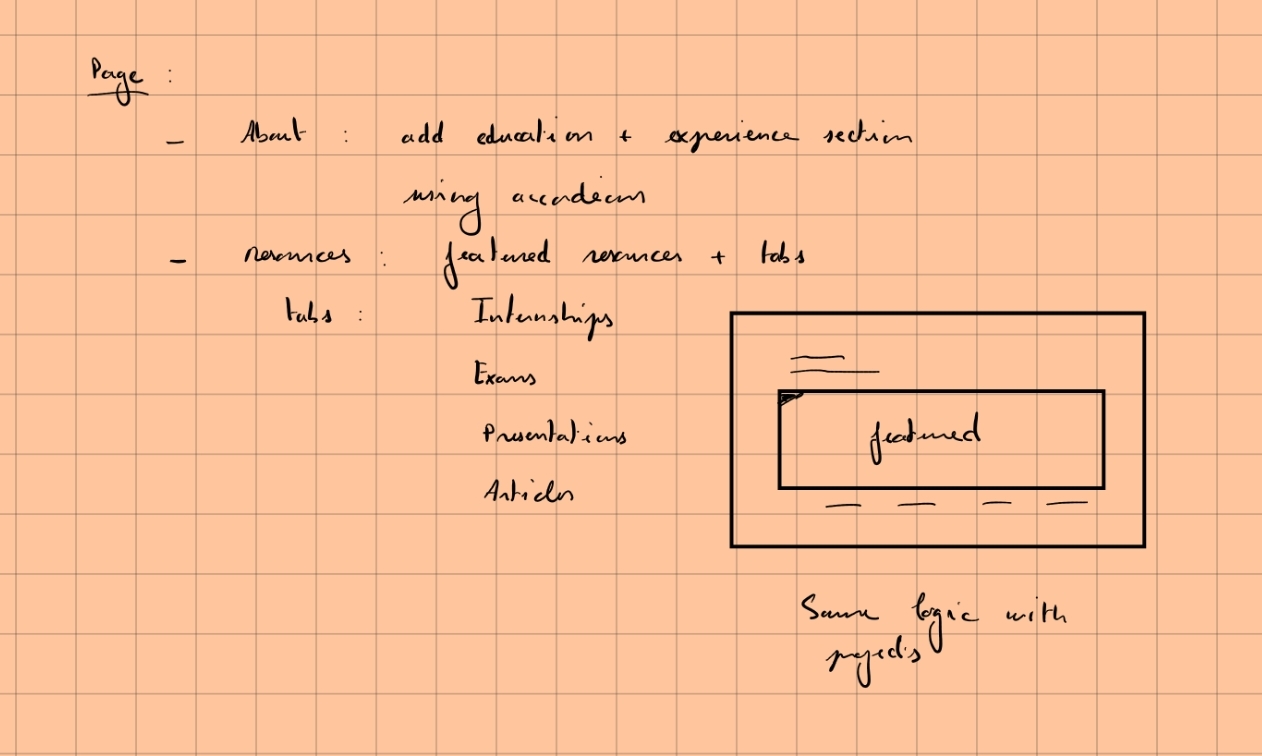 Page :
- About : add education + experience section
using accordeons
- resources : featured resources + tabs
tabs : Internships
Exams
Presentations
Articles
featured
Same logic with
projects